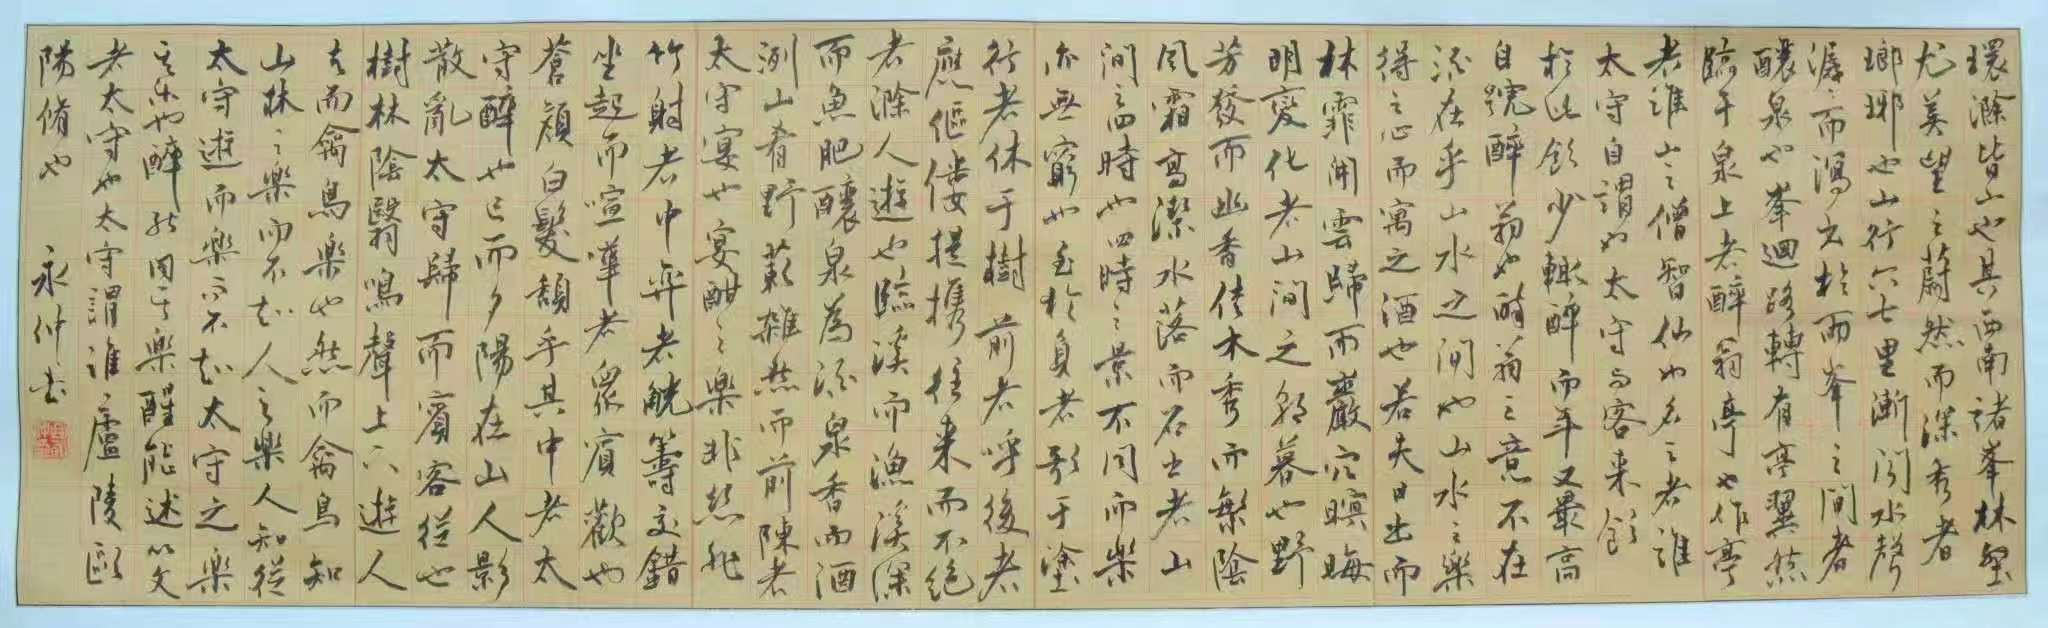 環滁皆山也其西南諸峯林壑
尤美望之蔚然而深秀者
瑯琊也山行六七里漸聞水聲
潺潺而瀉出於兩峯之間者
釀泉也峯迴路轉有亭翼然
臨于泉上者醉翁亭也作亭
者誰山之僧智仙也名之者誰
太守自謂也太守與客來飲
於此飲少輒醉而年又最高
自號醉翁也醉翁之意不在
酒在乎山水之間也山水之樂
得之心而寓之酒也若夫日出而
林霏開雲歸而巖穴暝晦
明變化者山間之朝暮也野
芳發而幽香佳木秀而繁陰
風霜高潔水落而石出者山
間之四時也四時之景不同而樂
亦無窮也至於負者歌于塗
行者休于樹前者呼後者
應傴僂提攜往来而不绝
者滁人遊也臨溪而漁溪深
而魚肥釀泉為酒泉香而酒
洌山肴野蔌雜然而前陳者
太守宴也宴酣之樂非絲非
竹射者中弈者觥籌交錯
坐起而喧嘩者眾賓歡也
蒼顏白髮頹乎其中者太
守醉也已而夕陽在山人影
散亂太守歸而賓客從也
樹林陰翳鳴聲上下遊人
去而禽鳥樂也然而禽鳥知
山林之樂而不知人之樂人知從
太守遊而樂而不知太守之樂
其樂也醉能同其樂醒能述以文
者太守也太守謂誰廬陵歐
陽脩也
永仲書